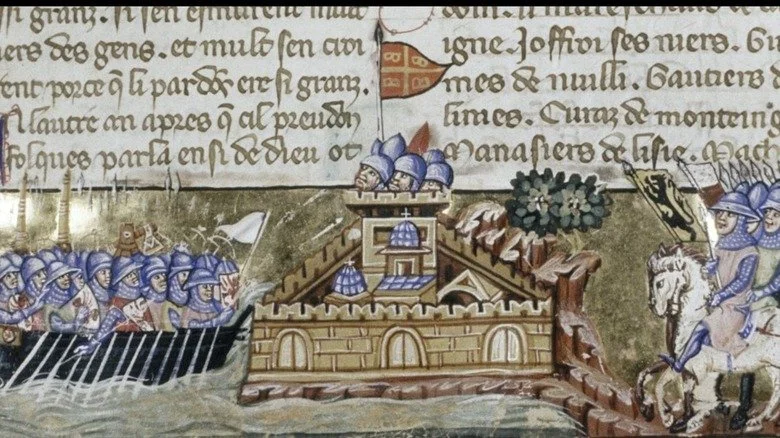 granz. si sen esmurent mult
iers des gens. et mult sen croi
ent porce q̃ li pardõs ere si granz.
A lautre an apres q̃ cil preudon
folques parla ensi de dieu ot
li mareschaus de
igne. Joffroi ses niers. Gui
mes de nuilli. Gautiers d
limes. Euraz de monteini
Manasiers de lisle. Mach